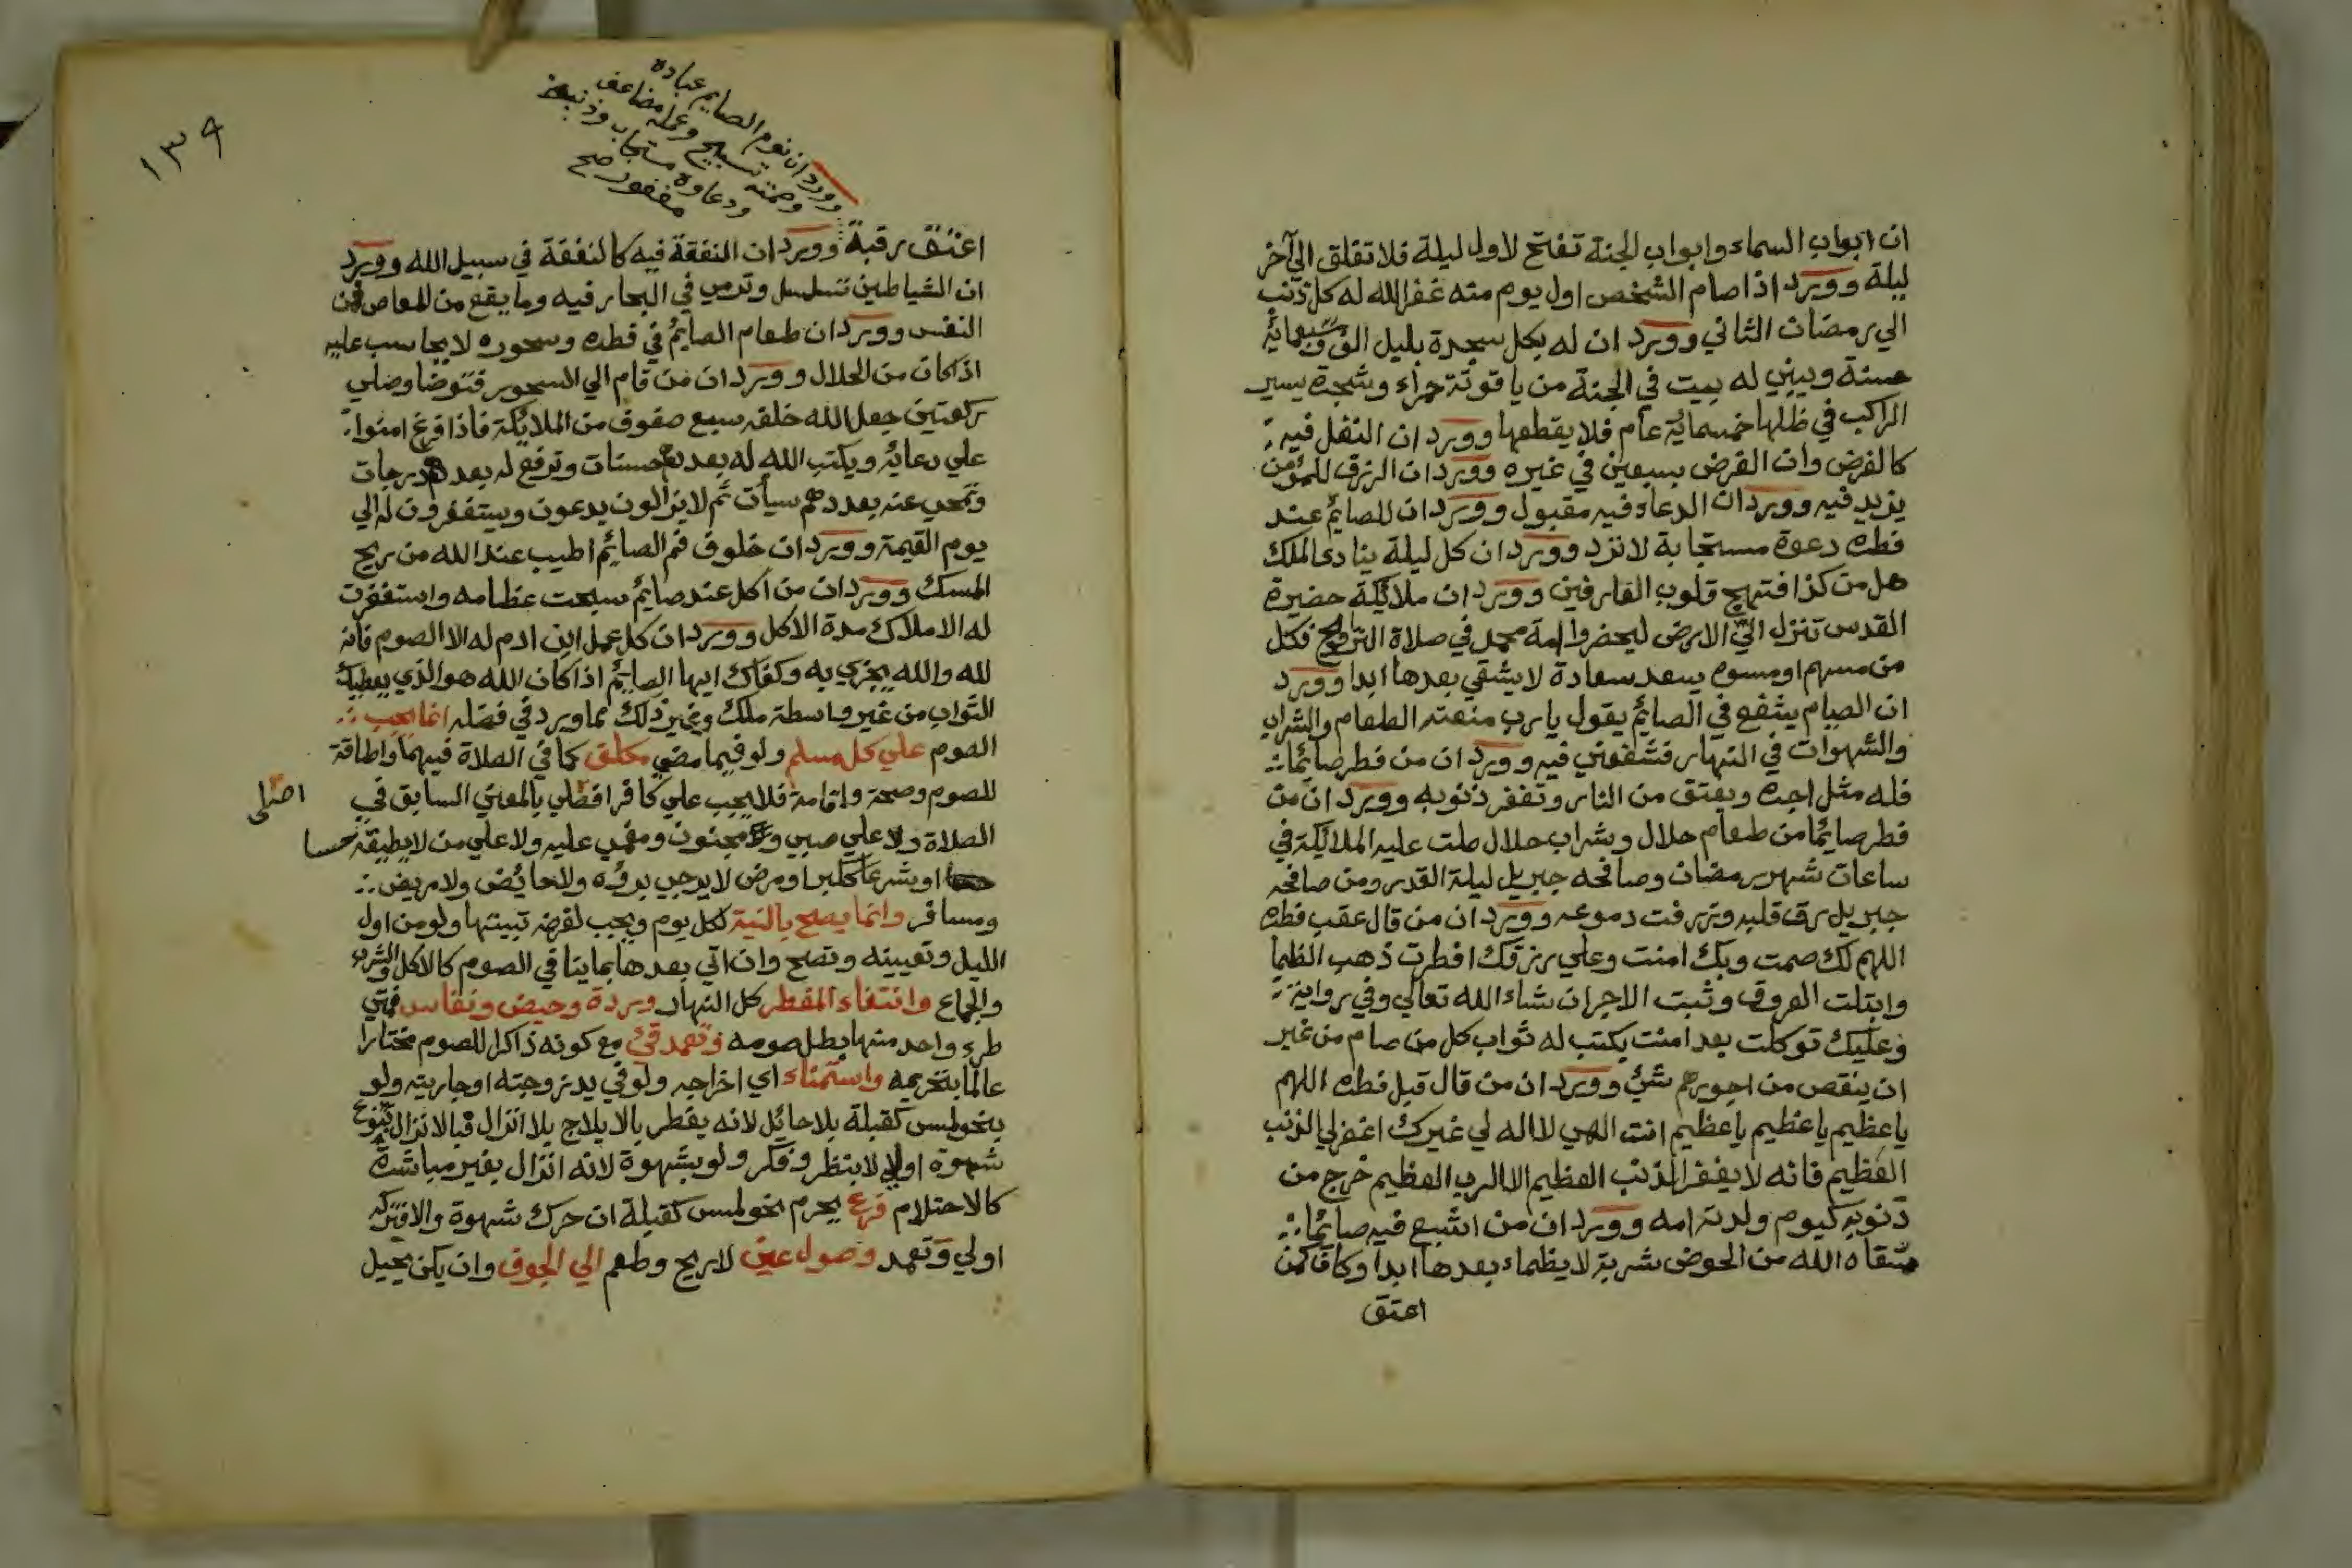 ان ابواب السماء وابواب الجنة تفتح لاول ليلة فلا تغلق الي آخر
ليلة وورد اذا صام الشخص اول يوم منه غفر الله له كل ذنب
الي رمضان الثاني وورد ان له بكل سجدة بليل الف وسبعمائة
حسنة ويبني له بيت في الجنة من ياقوتة حمراء وشجرة يسير
الراكب في ظلها خمسماية عام فلا يقطعها وورد ان النفل فيه
كالفرض وان الفرض بسبعين في غيره وورد ان الرزق للمؤمن
يزيد فيه وورد ان الدعاء فيه مقبول وورد ان للصائم عند
فطره دعوة مستجابة لا ترد وورد ان كل ليلة ينادى الملك
هل من كذا فتبتهج قلوب العارفين وورد ان ملائكة حضيرة
القدس تنزل الي الارض ليحضروا امة محمد في صلاة التراويح فكل
من مسهم او مسوه يسعد سعادة لا يشقي بعدها ابدا وورد
ان الصيام يشفع في الصائم يقول يا رب منعته الطعام والشراب
والشهوات في النهار فشفعني فيه وورد ان من فطر صائما
فله مثل اجره ويعتق من النار وتغفر ذنوبه وورد ان من
فطر صائما من طعام حلال وشراب حلال صلت عليه الملائكة في
ساعات شهر رمضان وصافحه جبريل ليلة القدر ومن صافحه
جبريل رق قلبه وزرفت دموعه وورد ان من قال عقب فطره
اللهم لك صمت وبك امنت وعلي رزقك افطرت ذهب الظما
وابتلت العروق وثبت الاجر ان شاء الله تعالي وفي رواية
وعليك توكلت بعد امنت يكتب له ثواب كل من صام من غير
ان ينقص من اجورهم شئ وورد ان من قال قبل فطره اللهم
يا عظيم يا عظيم يا عظيم انت الهي لا اله لي غيرك اغفر لي الذنب
العظيم فانه لا يغفر الذنب العظيم الا الرب العظيم خرج من
ذنوبه كيوم ولدته امه وورد ان من اشبع فيه صايما
سقاه الله من الحوض شربة لا يظماء بعدها ابدا وكان كمن
اعتق
١٣٩
وورد ان نوم الصايم عبادة
وصمته تسبيح وعمله مضاعف
ودعاوه مستجاب وذنبه
مغفور صح
اعتق رقبة وورد ان النفقة فيه كالنفقة في سبيل الله وورد
ان الشياطين تسلسل وترمي في البحار فيه وما يقع من المعاص فمن
النفس وورد ان طعام الصايم في فطره وسحوره لا يحاسب عليه
اذا كان من الحلال وورد ان من قام الي السحور فتوضا وصلي
ركعتين جعل الله خلفه سبع صفوف من الملائكة فاذا فرغ امنوا
علي دعائه ويكتب الله له بعددهم حسنات وترفع له بعددهم درجات
وتمحي عنه بعددهم سيأت ثم لا يزالون يدعون ويستغفرون له الي
يوم القيمة وورد ان خلوف فم الصايم اطيب عند الله من ريح
المسك وورد ان من اكل عند صايم سبحت عظامه واستغفرت
له الاملاك مدة الاكل وورد ان كل عمل ابن ادم له الا الصوم فانه
لله والله يجزي به وكفاك ايها الصايم اذا كان الله هو الذي يعطيك
الثواب من غير واسطة ملك وغير ذلك مما ورد في فضله انما يجب
الصوم علي كل مسلم ولو فيما مضي مكلف كما في الصلاة فيهما واطاقة
للصوم وصحة واقامة فلا يجب علي كافر اصلي بالمعني السابق في
اصلى
الصلاة ولا علي صبي ومجنون ومغمي عليه ولا علي من لا يطيقه حسا
او شرعا لكبر او مرض لا يرجي بروه ولا حائض ولا مريض
ومسافر وانما يصح بالنية لكل يوم ويجب لفرضه تبيتها ولو من اول
الليل وتعيينه وتصح وان اتي بعدها بما ينافي الصوم كالاكل والشرب
والجماع وانتفاء المفطر كل النهار وردة وحيض ونفاس فمتي
طرء واحد منها بطل صومه وتعمد قئ مع كونه ذاكرا للصوم مختارا
عالما بتحريمه واستمناء اي اخراجه ولو في يد زوجته او جاريته ولو
بنحو لمس كقبلة بلا حائل لانه يفطر بالايلاج بلا انزال فبالانزال بنوع
شهوة اولي لا بنظر وفكر ولو بشهوة لانه انزال بغير مباشرة
كالاحتلام فرع يحرم نحو لمس كقبلة ان حرك شهوة والا فتركه
اولي وتعمد وصول عين لا ريح وطعم الي الجوف وان يكن يحيل